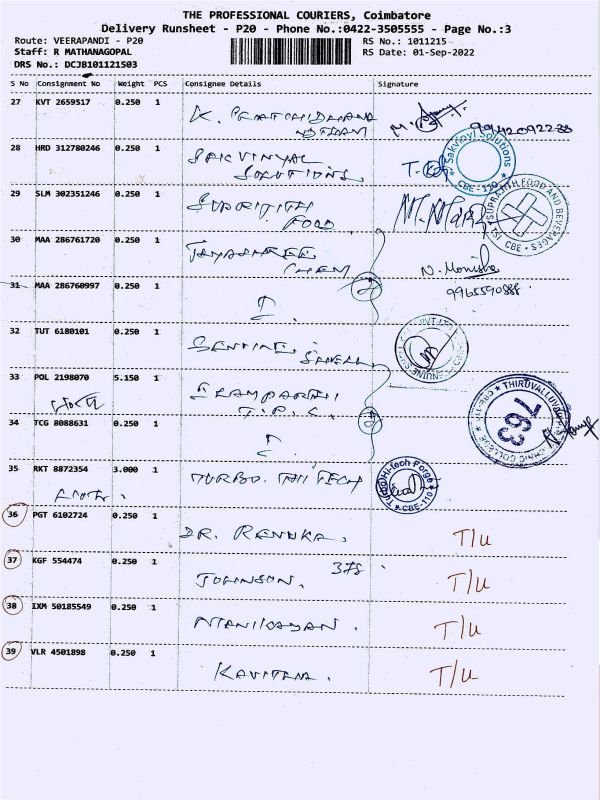 THE PROFESSIONAL COURIERS, Coimbatore
Delivery Runsheet - P20 - Phone No.:0422-3505555 - Page No.:3
Route: VEERAPANDI - P20 RS No.: 1011215
Staff: R MATHANAGOPAL RS Date: 01-Sep-2022
DRS No.: DCJB101121503
S No Consignment No Weight PCS Consignee Details Signature
27 KVT 2659517 0.250 1 K.
28 HRD 312780246 0.250 1 SAKVINYAL
SOLUTIONS
Sakvinyl Solutions
CBE-110
29 SLM 302351246 0.250 1
FOOD
SUPRATITH FOOD AND BEVERAGES
CBE
30 MAA 286761720 0.250 1 JAYASHREE
CHEM N. Monisha
31 MAA 286760997 0.250 1 9965590888
32 TUT 6180101 0.250 1
33 POL 2198070 5.150 1
T.P.C.
THIRUVALLUVAR
763
34 TCG 8088631 0.250 1
35 RKT 8872354 3.000 1 TURBO HITECH
Turbo Hi-tech Forge
CBE-110
36 PGT 6102724 0.250 1 DR. RENUKA. T/U
37 KGF 554474 0.250 1 JOHNSON. 378 T/U
38 IXM 50185549 0.250 1 MANIKAYAN. T/U
39 VLR 4501898 0.250 1 KAVITHA. T/U